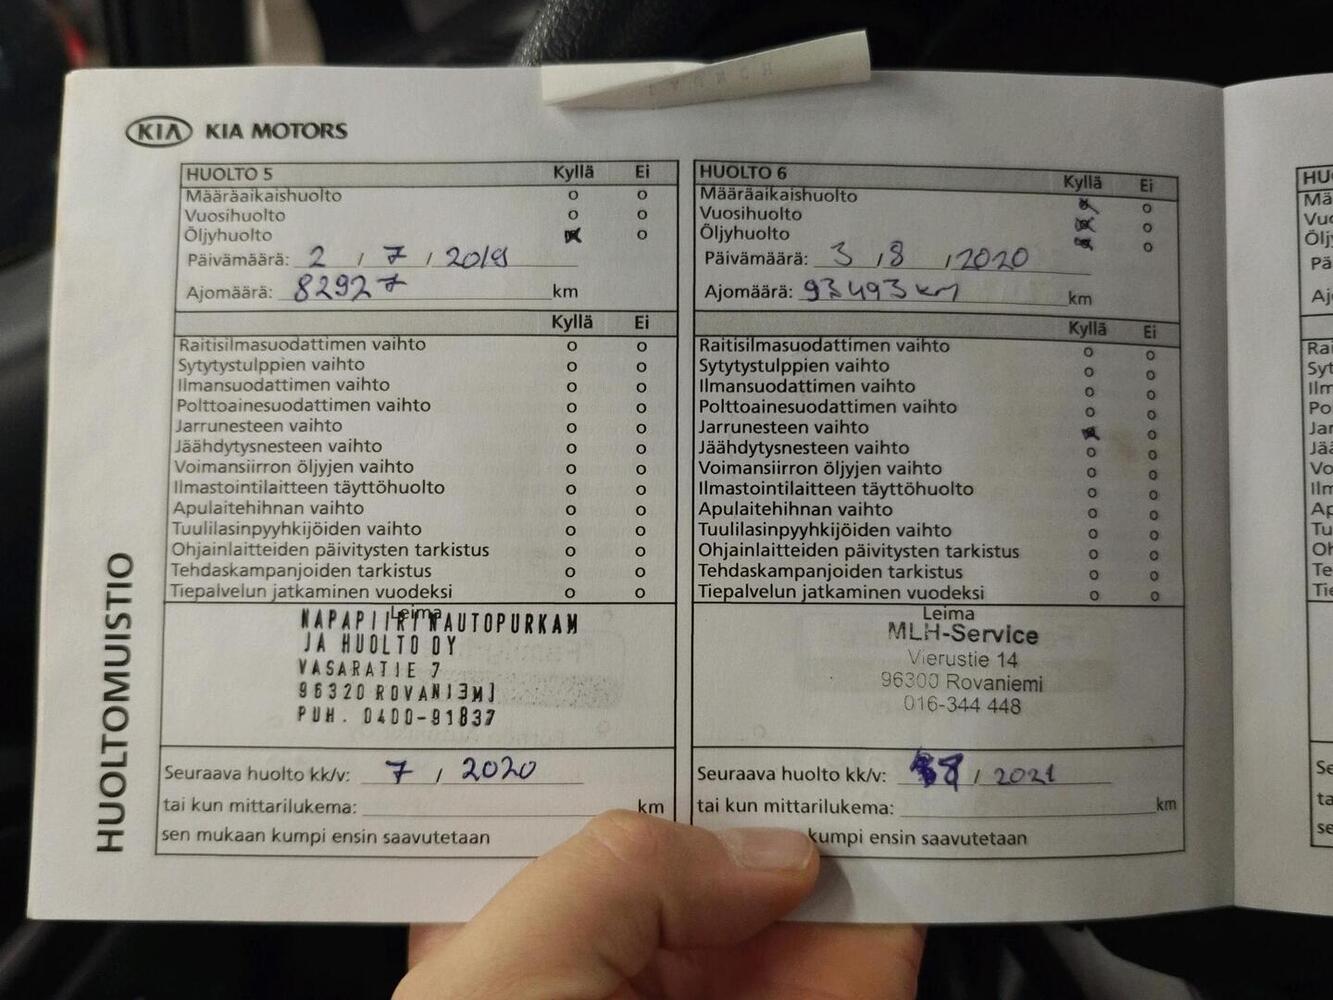 KIA KIA MOTORS
HUOLTO 5 Kyllä Ei
Määräaikaishuolto o o
Vuosihuolto o o
Öljyhuolto o
Päivämäärä: 2 / 7 / 2019
Ajomäärä: 82927 km
Kyllä Ei
Raitisilmasuodattimen vaihto o o
Sytytystulppien vaihto o o
Ilmansuodattimen vaihto o o
Polttoainesuodattimen vaihto o o
Jarrunesteen vaihto o o
Jäähdytysnesteen vaihto o o
Voimansiirron öljyjen vaihto o o
Ilmastointilaitteen täyttöhuolto o o
Apulaitehihnan vaihto o o
Tuulilasinpyyhkijöiden vaihto o o
Ohjainlaitteiden päivitysten tarkistus o o
Tehdaskampanjoiden tarkistus o o
Tiepalvelun jatkaminen vuodeksi o o
Leima
NAPAPIIRINAUTOPURKAM
JA HUOLTO OY
VASARATIE 7
96320 ROVANIEMI
PUH. 0400-91837
Seuraava huolto kk/v: 7 / 2020
tai kun mittarilukema: km
sen mukaan kumpi ensin saavutetaan
HUOLTO 6 Kyllä Ei
Määräaikaishuolto o
Vuosihuolto o
Öljyhuolto o
Päivämäärä: 3 / 8 / 2020
Ajomäärä: 93493 km km
Kyllä Ei
Raitisilmasuodattimen vaihto o o
Sytytystulppien vaihto o o
Ilmansuodattimen vaihto o o
Polttoainesuodattimen vaihto o o
Jarrunesteen vaihto o
Jäähdytysnesteen vaihto o o
Voimansiirron öljyjen vaihto o o
Ilmastointilaitteen täyttöhuolto o o
Apulaitehihnan vaihto o o
Tuulilasinpyyhkijöiden vaihto o o
Ohjainlaitteiden päivitysten tarkistus o o
Tehdaskampanjoiden tarkistus o o
Tiepalvelun jatkaminen vuodeksi o o
Leima
MLH-Service
Vierustie 14
96300 Rovaniemi
016-344 448
Seuraava huolto kk/v: 8 / 2021
tai kun mittarilukema: km
kumpi ensin saavutetaan
HUOLTOMUISTIO